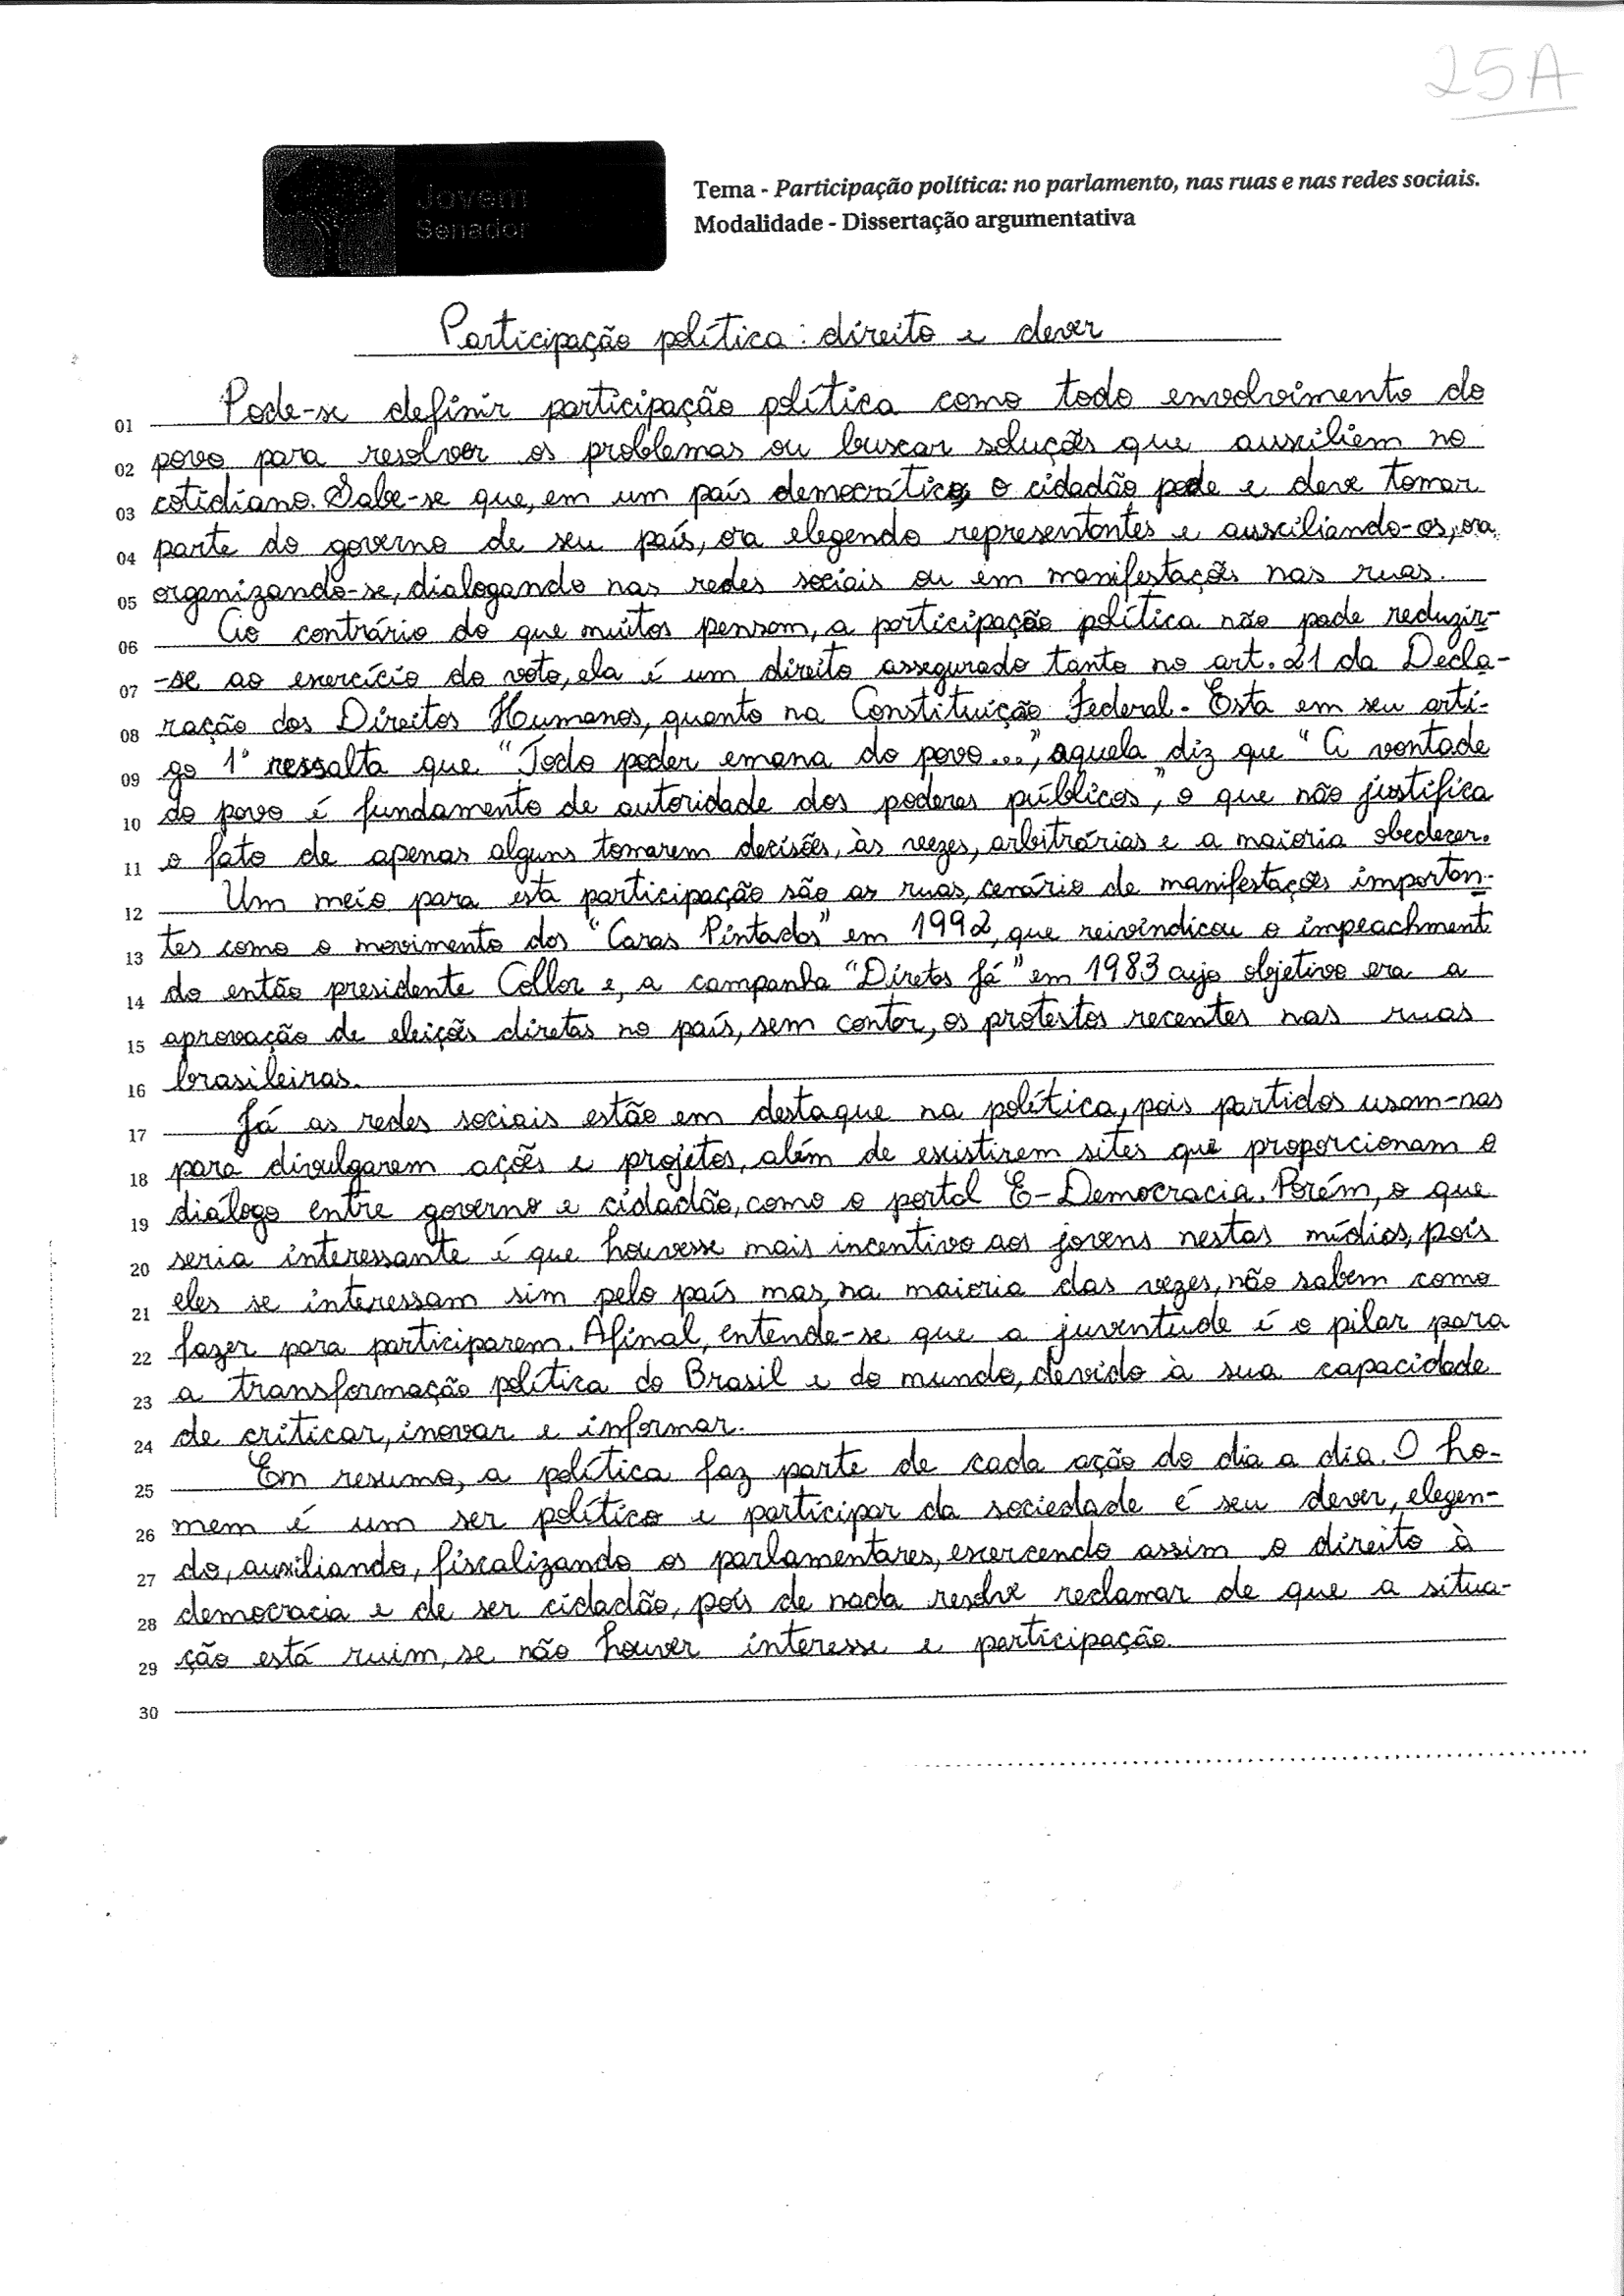 25A
Jovem
Senador
Tema - Participação política: no parlamento, nas ruas e nas redes sociais.
Modalidade - Dissertação argumentativa
Participação política: direito e dever
01 Pode-se definir participação política como todo envolvimento do
02 povo para resolver os problemas ou buscar soluções que auxiliem no
03 cotidiano. Sabe-se que, em um país democrático, o cidadão pode e deve tomar
04 parte do governo de seu país, ora elegendo representantes e auxiliando-os, ora
05 organizando-se, dialogando nas redes sociais ou em manifestações nas ruas.
06 Ao contrário do que muitos pensam, a participação política não pode reduzir-
07 -se ao exercício do voto, ela é um direito assegurado tanto no art. 21 da Decla-
08 ração dos Direitos Humanos, quanto na Constituição Federal. Esta em seu arti-
09 go 1° ressalta que "Todo poder emana do povo...", aquela diz que "A vontade
10 do povo é fundamento de autoridade dos poderes públicos", o que não justifica
11 o fato de apenas alguns tomarem decisões, às vezes, arbitrárias e a maioria obedecer.
12 Um meio para esta participação são as ruas, cenário de manifestações importan-
13 tes como o movimento dos "Caras Pintadas" em 1992, que reivindicou o impeachment
14 do então presidente Collor e, a campanha "Diretas Já" em 1983 cujo objetivo era a
15 aprovação de eleições diretas no país, sem contar, os protestos recentes nas ruas
16 brasileiras.
17 Já as redes sociais estão em destaque na política, pois partidos usam-nas
18 para divulgarem ações e projetos, além de existirem sites que proporcionam o
19 diálogo entre governo e cidadão, como o portal E-Democracia. Porém, o que
20 seria interessante é que houvesse mais incentivo aos jovens nestas mídias, pois
21 eles se interessam sim pelo país mas, na maioria das vezes, não sabem como
22 fazer para participarem. Afinal, entende-se que a juventude é o pilar para
23 a transformação política do Brasil e do mundo, devido à sua capacidade
24 de criticar, inovar e informar.
25 Em resumo, a política faz parte de cada ação do dia a dia. O ho-
26 mem é um ser político e participar da sociedade é seu dever, elegen-
27 do, auxiliando, fiscalizando os parlamentares, exercendo assim o direito à
28 democracia e de ser cidadão, pois de nada resolve reclamar de que a situa-
29 ção está ruim, se não houver interesse e participação.
30